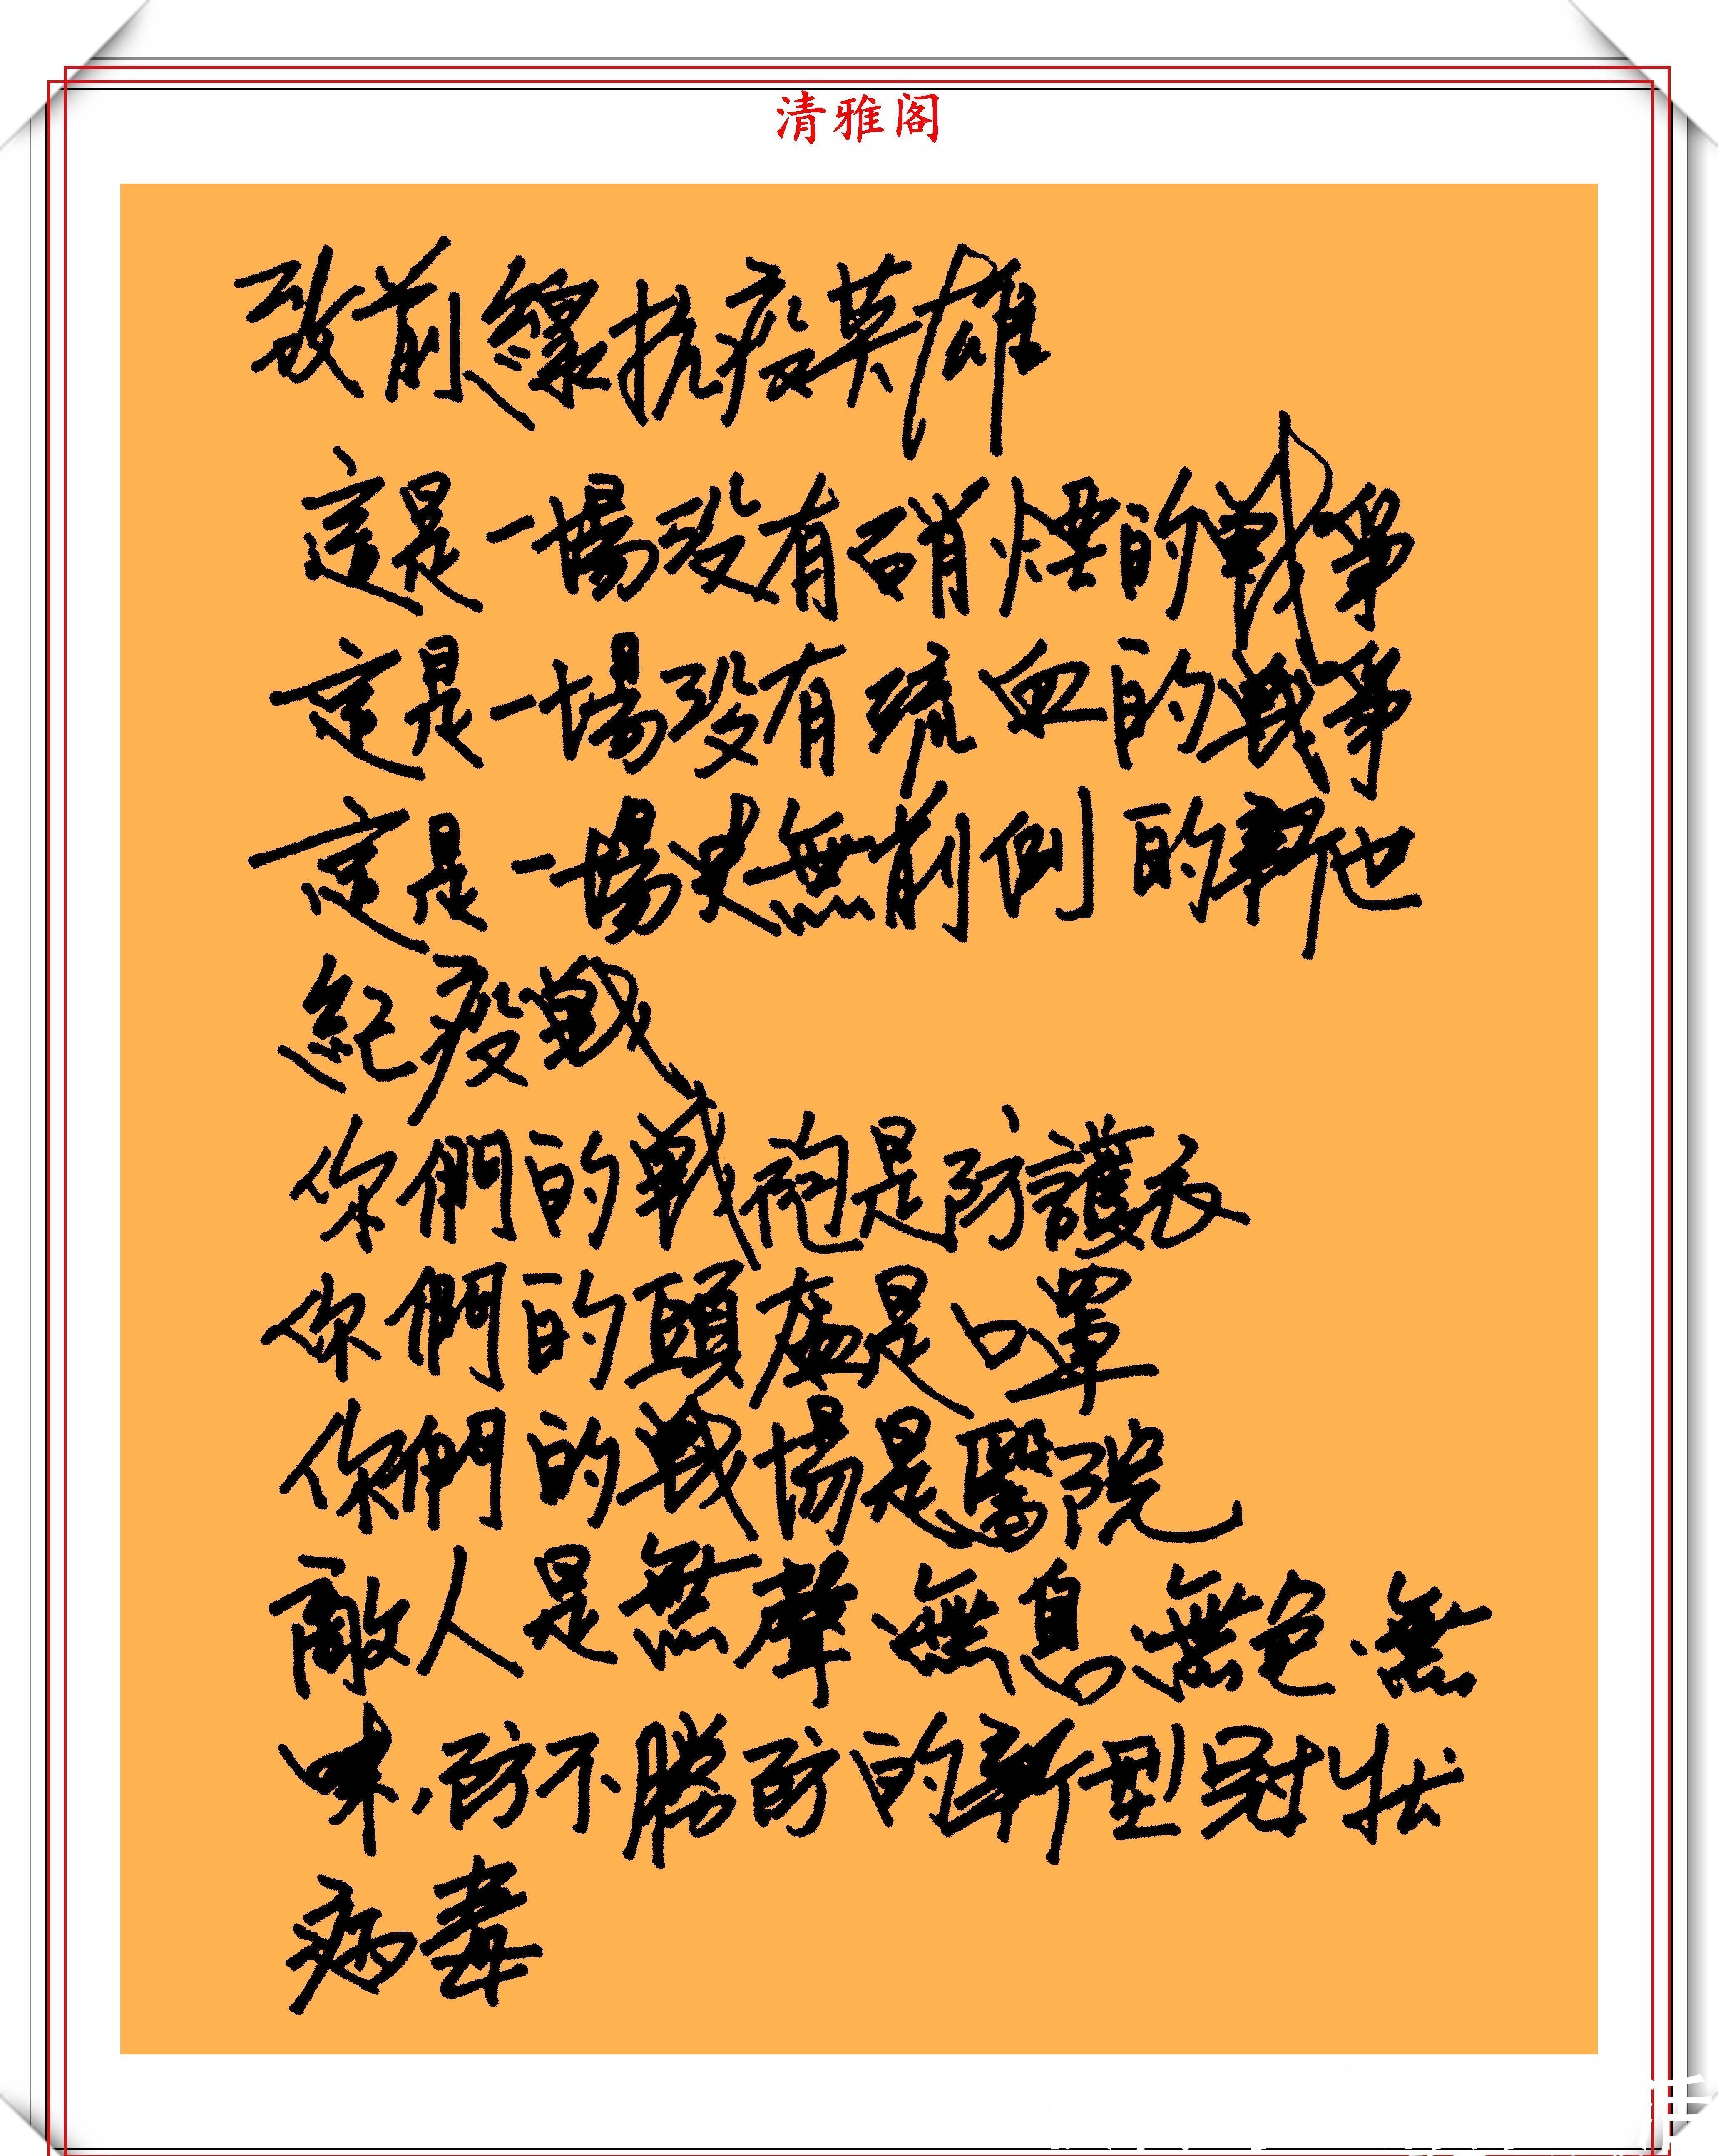 清雅阁
致前線抗疫英雄
這是一場没有硝煙的戰争
這是一場没有流血的戰争
這是一場史無前例的新世
紀疫戰
你們的戰袍是防護衣
你們的頭盔是口罩
你們的戰場是醫院
敵人是無聲無息、無色、無
味、防不勝防的新型冠狀
病毒